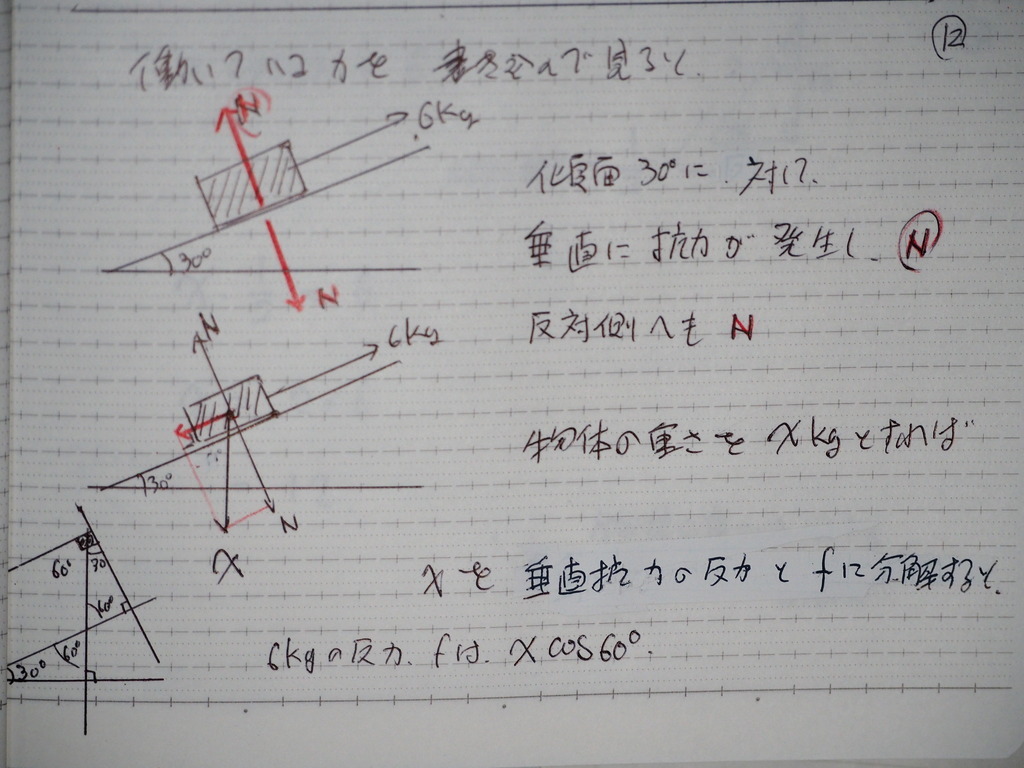 ⑫
働いている力を 書き込んで見ると、
N
6kg
30°
N
傾斜面 30°に、対して、
垂直に抗力が 発生し、 N
反対側へも N
N
6kg
30°
N
x
物体の重さを xkgとすれば
60°
30
60°
60°
30°
xを 垂直抗力の反力と fに分解すると、
6kgの反力、fは、x cos60°.